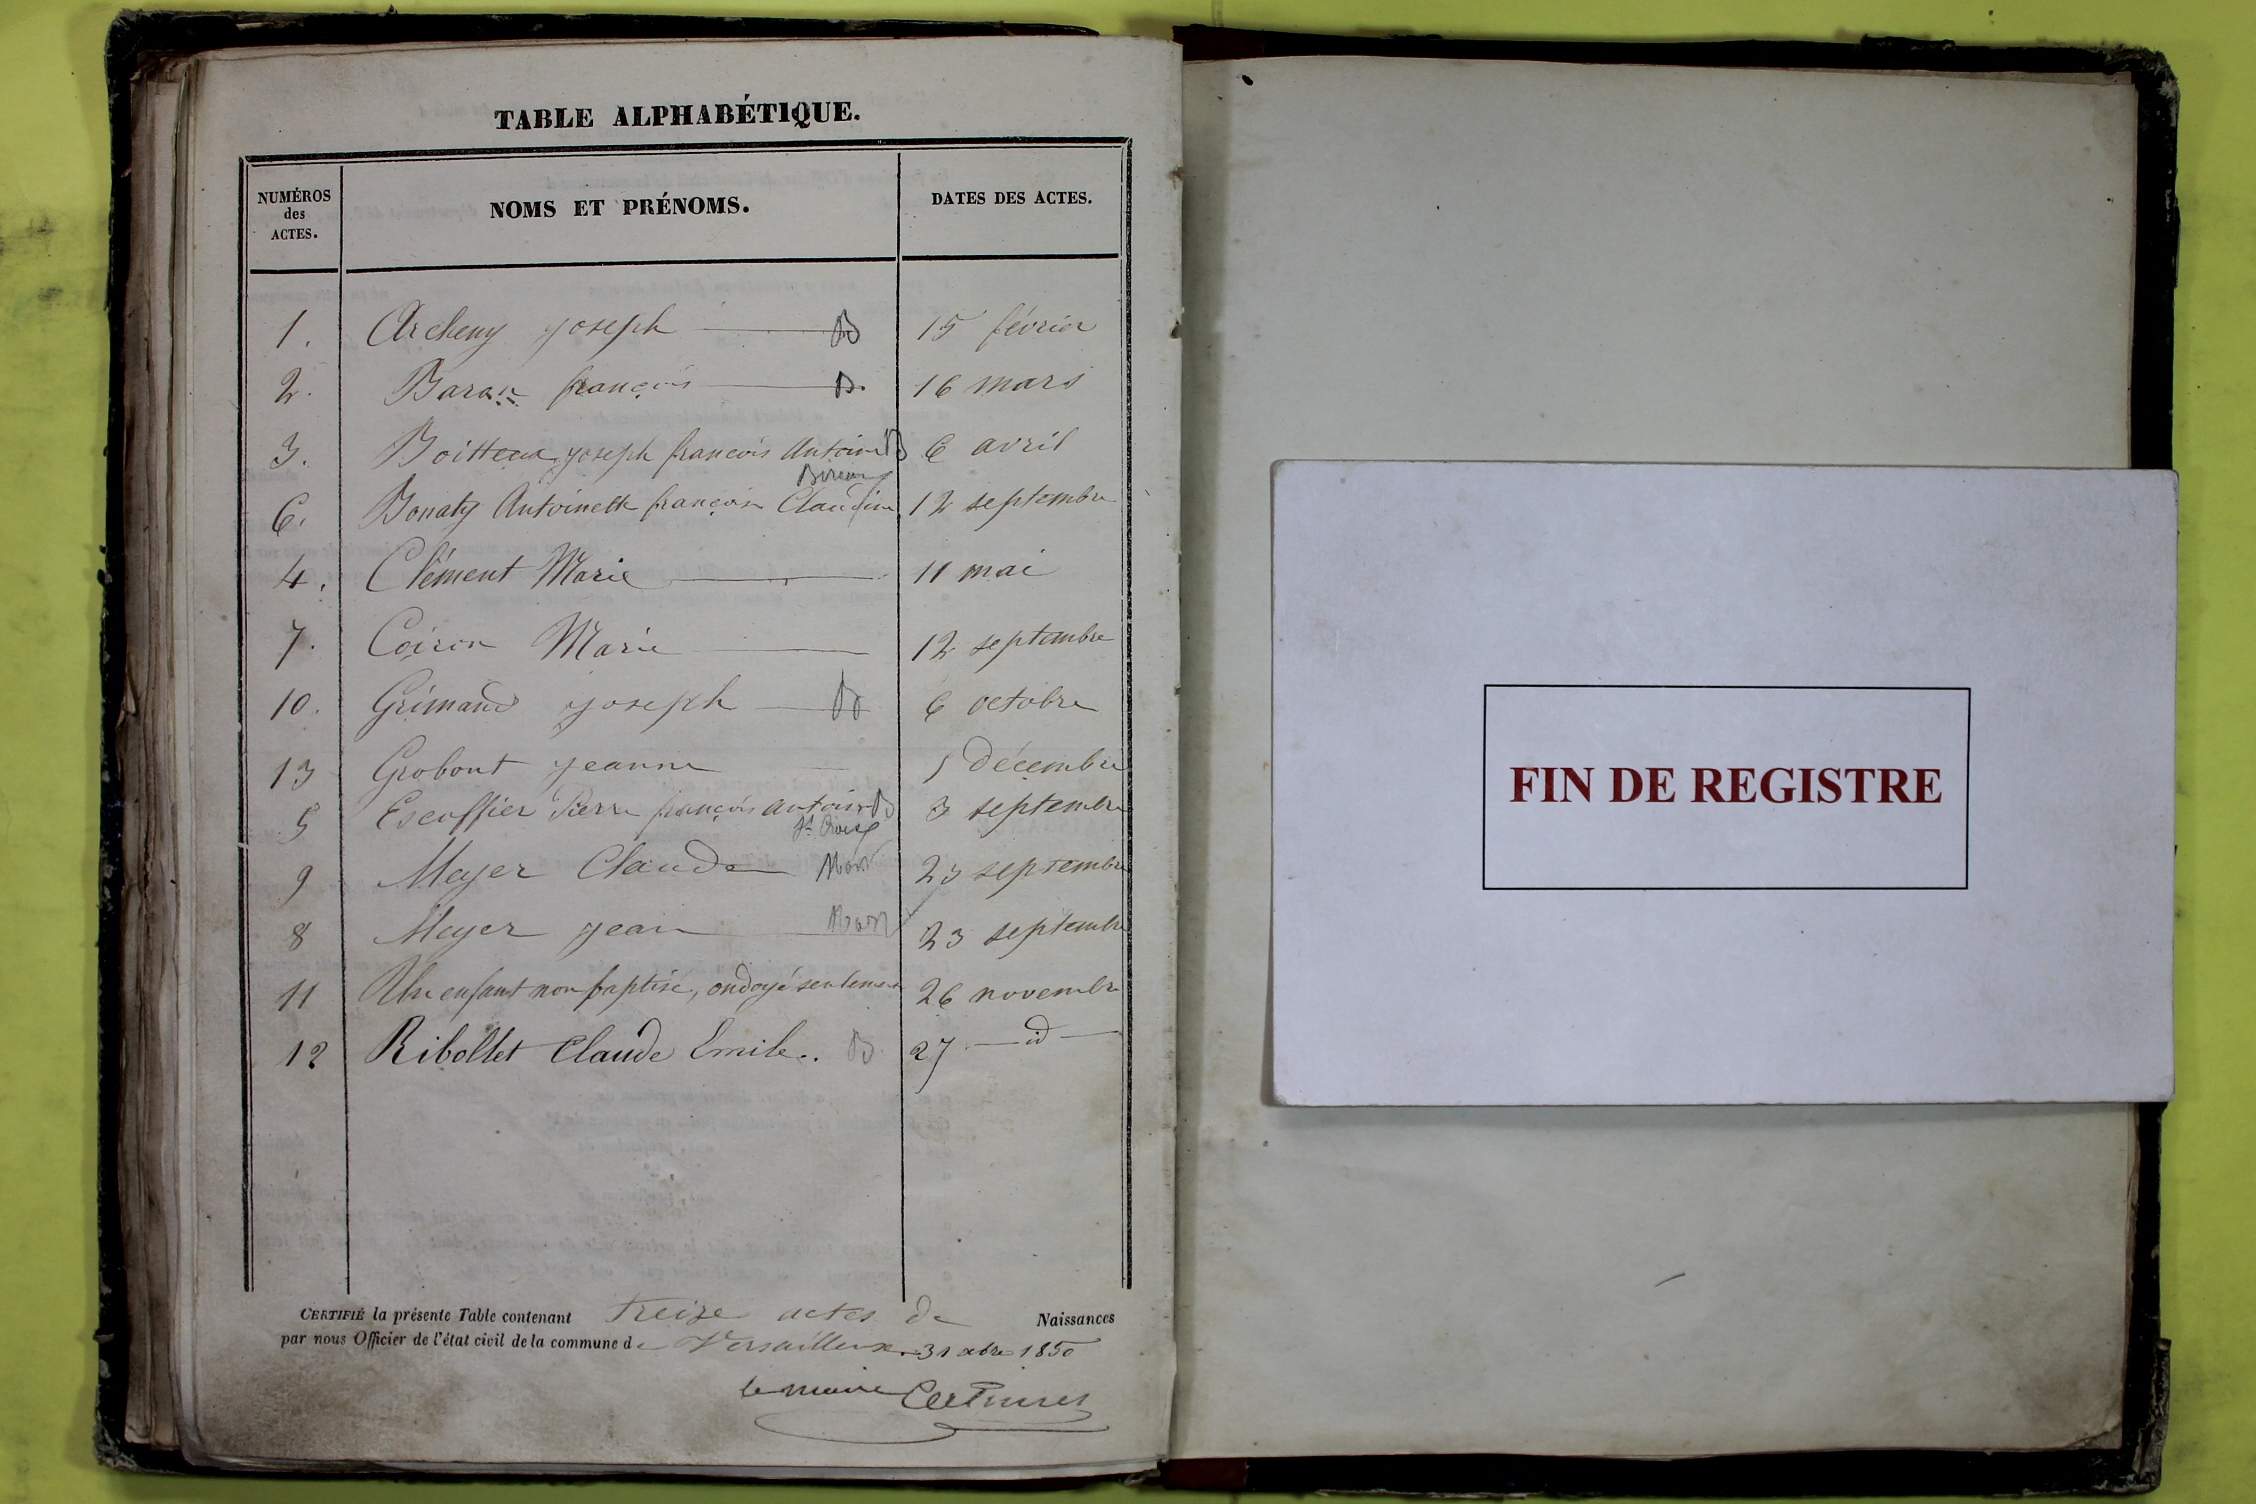 TABLE ALPHABÉTIQUE.
NUMÉROS
des
ACTES.
NOMS ET PRÉNOMS.
DATES DES ACTES.
1. Archeny joseph B 15 février
2. Baraz françois B. 16 mars
3. Boitteux joseph françois Antoine B 6 avril
6. Bonaty Antoinette françoise Claudine 12 septembre
4. Clément Marie 11 mai
7. Coiron Marie 12 septembre
10. Grimaud joseph B 6 octobre
13 Grobont jeanne 1 décembre
5 Escoffier Pierre françois antoine B 3 septembre
9 Meyer Claude Mort 23 septembre
8 Meyer jean Mort 23 septembre
11 Un enfant non baptisé, ondoyé seulement 26 novembre
12 Ribollet Claude Emile.. B 27 — id —
CERTIFIÉ la présente Table contenant treize actes de Naissances
par nous Officier de l'état civil de la commune de Versailleux. 31 xbre 1850
le maire
FIN DE REGISTRE